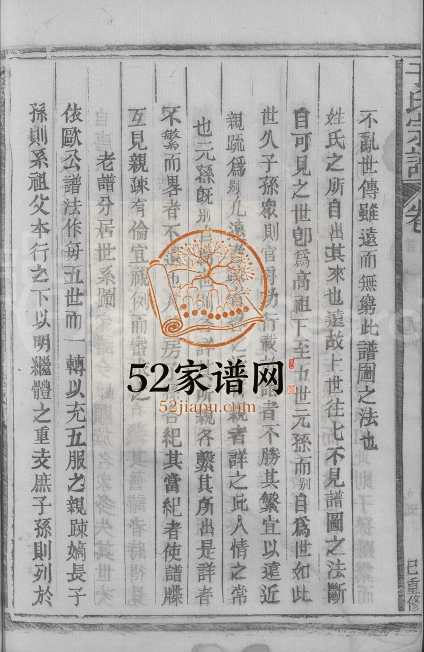 王氏宗譜 卷
不亂世傳雖遠而無窮此譜圖之法也
姓氏之所自出其來也遠故上世往々不見譜圖之法斷
自可見之世卽爲高祖下至五世元孫而別自爲世如此
世久子孫衆則官爵功行載 譜者不勝其繁宜以遠近
親疎爲別凡遠者疎者 親者詳之此人情之常
也元孫旣別自爲世則 詳其所親各繫其所出是詳者
不繁而畧者不遺 房 各紀其當紀者使譜牒
互見親疎有倫宜 例而審
老譜分居世系圖
依歐公譜法作每五世而一轉以充五服之親疎嫡長子
孫則系祖父本行之下以明繼體之重支庶子孫則列於
己重修
52家谱网
52jiapu.com